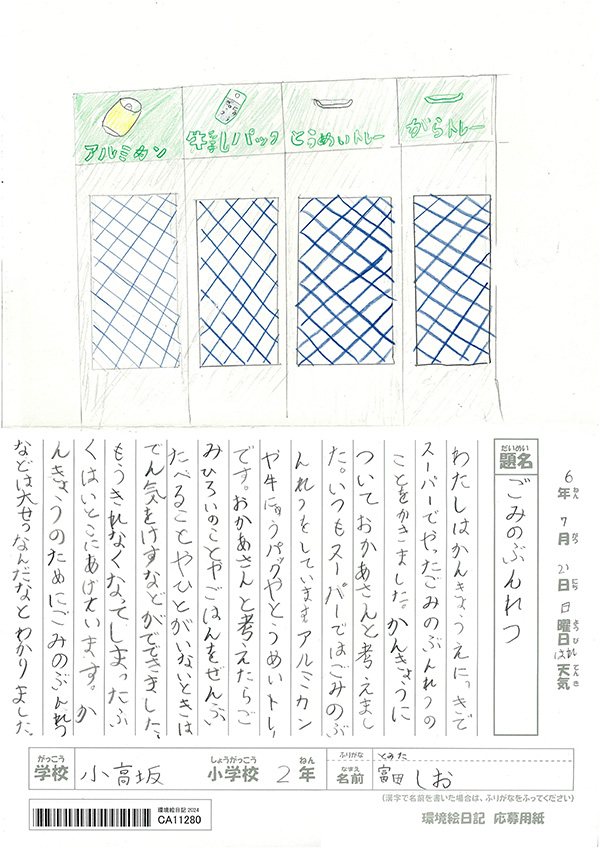 アルミカン
牛乳パック
とうめいトレー
がらトレー
6年 7月 21日 日曜日 はれ 天気
ねん がつ にち ようび てんき
だいめい
題名 ごみのぶんれつ
わたしはかんきょうえにっきで
スーパーでやったごみのぶんれつの
ことをかきました。かんきょうに
ついておかあさんと考えまし
た。いつもスーパーではごみのぶ
んれつをしています。アルミカン
や牛にゅうパックやとうめいトレー
です。おかあさんと考えたらご
みひろいのことやごはんをぜんぶ
たべることやひとがいないときは
でん気をけすなどがでてきました。
もうきれなくなってしまったふ
くはいとこにあげています。か
んきょうのためにごみのぶんれつ
などは大せつなんだなとわかりました。
がっこう しょうがっこう ねん
学校 小高坂 小学校 2年
ふりがな とみた
なまえ
名前 富田 しお
(漢字で名前を書いた場合は、ふりがなをふってください)
環境絵日記 2024
CA11280
環境絵日記 応募用紙